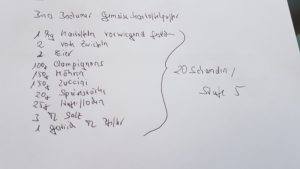 Bochumer Gemüsekartoffelpuffer
1 kg Kartoffeln vorwiegend
2 rote Zwiebeln
2 Eier
100g Champignons
150g Möhren
150g Zuccini
20g Speisestärke
25g Haferflocken
3 TL Salz
1 TL Pfeffer
20 Sekunden /
Stufe 5